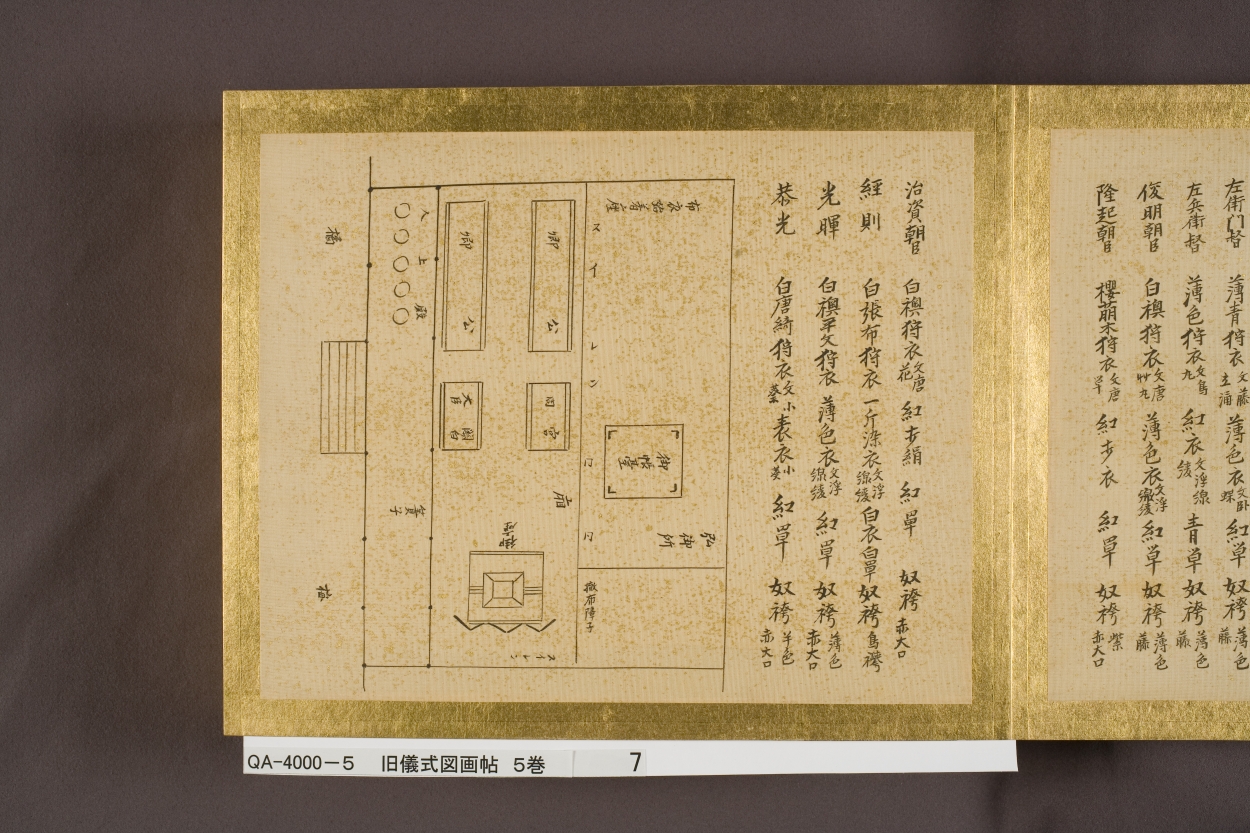 左衛門督 薄青狩衣 文藤立涌 薄色衣 文臥蝶 紅単 奴袴 薄色藤
左兵衛督 薄色狩衣 文鳥九 紅衣 文浮線綾 青単 奴袴 薄色藤
俊明朝臣 白襖狩衣 文唐艸九 薄色衣 文浮線綾 紅単 奴袴 薄色藤
隆起朝臣 櫻萌木狩衣 文唐草 紅歩衣 紅單 奴袴 紫赤大口
治資朝臣 白襖狩衣 文唐花 紅歩絹 紅單 奴袴 赤大口
經則 白張布狩衣 一斤染衣 文浮線綾 白衣白單 奴袴
光暉 白襖平文狩衣 薄色衣 文浮線綾 紅單 奴袴 薄色赤大口
恭光 白唐綺狩衣 文小葵 表衣 小葵 紅單 奴袴 赤大口
布衣始着座
弘御所
御帳臺
撤布障子
スイレン
廂
御座
卿
公
卿
公
関白
大臣
簀子
入
上
殿
橘
QA-4000-5 旧儀式図画帖 5巻 7